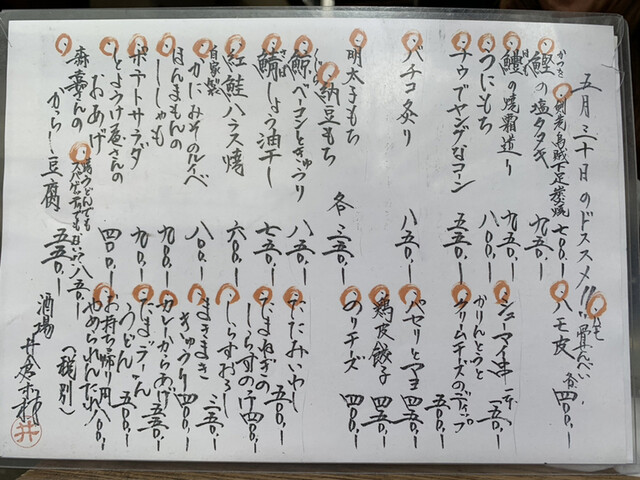 五月三十日のドススメ!!
ハモ骨せんべい
ハモ皮 各四〇〇、ー
剣先烏賊下足炭焼 七〇〇、ー
鰹の塩タタキ 九五〇、ー
かつを
鱧の焼霜造り 九五〇、ー
はも
うにもち 八〇〇、ー
チウでヤングなコーン 五五〇、ー
バチコ炙り 八五〇、ー
明太子もち
納豆もち 各三五〇、ー
鯨ベーコンときゅうり 八五〇、ー
くじら
鯖しょう油干し 七五〇、ー
さば
紅鮭ハラス焼 六〇〇、ー
自家製
かにみそのルイベ 八〇〇、ー
ほんまもんの
ししゃも 九八〇、ー
ポテトサラダ 九〇〇、ー
とようけ屋さんの
おあげ 四〇〇、ー
森嘉さんの
からし豆腐 五五〇、ー
八五〇、ー
シューマイ串 一本 一五〇、ー
かりんとうと
クリームチーズのディップ 五〇〇、ー
パセリとマヨ 四五〇、ー
鶏皮餃子 四五〇、ー
のりチーズ 四〇〇、ー
たたみいわし 五〇〇、ー
たまねぎの
しらすのけ 四〇〇、ー
しらすおろし 三五〇、ー
まきまき
きゅうり 四〇〇、ー
カレーからあげ 五五〇、ー
たまごラーメン 五〇〇、ー
うどん 五〇〇、ー
お持ち帰り用
やめられんたれ 八〇〇、ー
(税別)
酒場 井倉木材
井